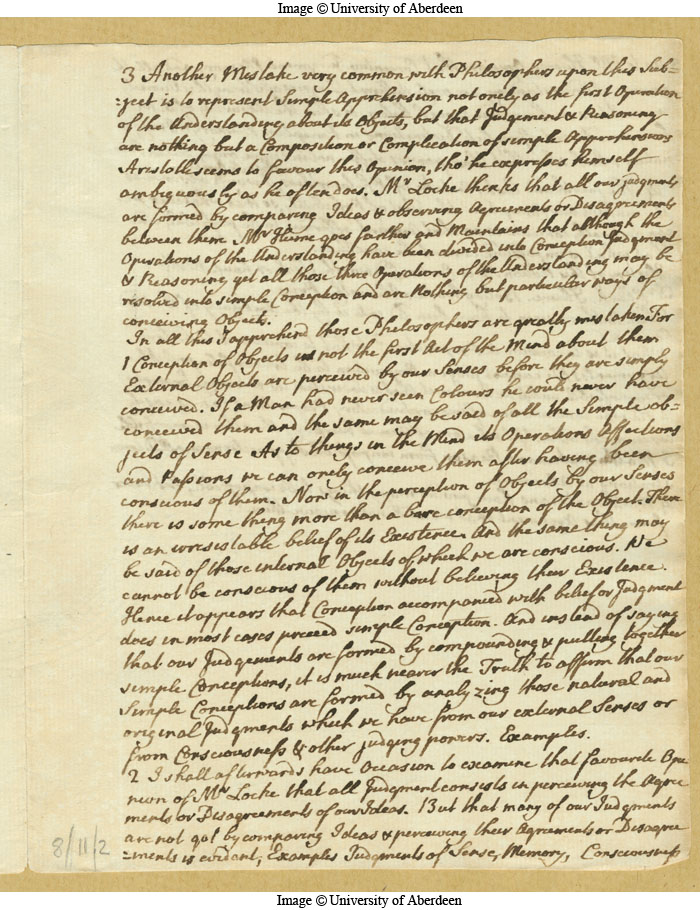 Image © University of Aberdeen
3 Another Mistake very common with Philosophers upon this Sub=
=ject is to represent Simple Apprehension not onely as the first Operation
of the Understanding about its Objects, but that Judgement & Reasoning
are nothing but a Composition or Complication of simple Apprehensions
Aristotle seems to favour this Opinion, tho' he expresses himself
ambiguously as he often does. Mr Locke thinks that all our judgments
are formed by comparing Ideas & observing Agreements or Disagreements
between them Mr Hume goes farther and Maintains that although the
Operations of the Understanding have been divided into Conception Judgment
& Reasoning yet all those three Operations of the Understanding may be
resolved into simple Conception and are Nothing but particular ways of
conceiving Objects.
In all this I apprehend those Philosophers are greatly mistaken For
1 Conception of Objects is not the first Act of the Mind about them
External Objects are perceived by our Senses before they are simply
conceived. If a Man had never seen Colours he could never have
conceived them and the same may be said of all the Simple ob=
jects of Sense As to things in the Mind its Operations Affections
and Passions we can onely conceive them after having been
conscious of them. Now in the perception of Objects by our Senses
there is some thing more than a bare conception of the Object. There
is an irresistable belief of its Existence. And the same thing may
be said of those internal Objects of which we are conscious. We
cannot be conscious of them without believing their Existence.
Hence it appears that Conception accompanied with belief or Judgment
does in most cases preceed simple Conception. And instead of saying
that our Judgements are formed by compounding & putting together
simple Conceptions, it is much nearer the Truth to affirm that our
Simple Conceptions are formed by analyzing those natural and
original Judgments which we have from our external Senses or
from Consciousness & other judging powers. Examples.
2 I shall afterwards have Occasion to examine that favourite Opi
nion of Mr Locke that all Judgment consists in perceiving the Agree
ments or Disagreements of our Ideas. But that many of our Judgments
are not got by comparing Ideas & perceiving their Agreements or Disagree
=ments is evident, Examples Judgments of Sense, Memory, Consciousness
8/11/2
Image © University of Aberdeen